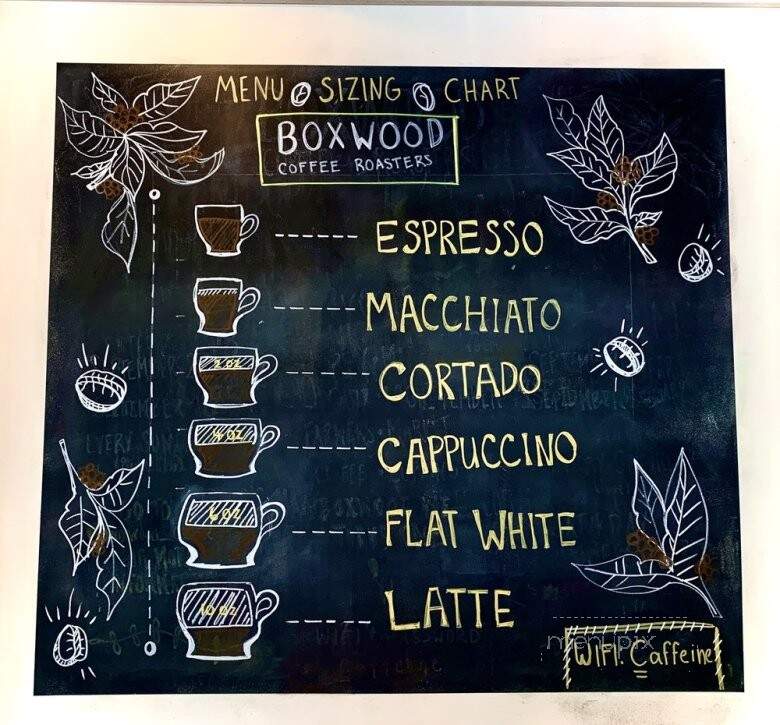 MENU SIZING CHART
BOXWOOD
COFFEE ROASTERS
ESPRESSO
MACCHIATO
2 OZ
CORTADO
4 OZ
CAPPUCCINO
6 OZ
FLAT WHITE
10 OZ
LATTE
menupix
WIFI: Caffeine